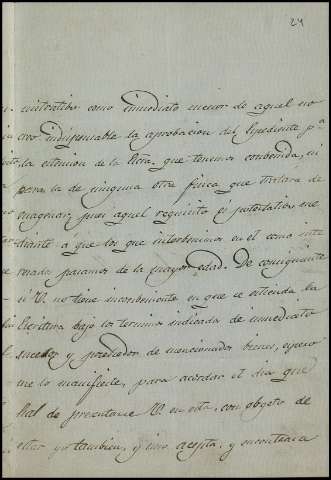 24
instentibo como inmediato sucesor de aquel no
creo indispensable la aprobacion del Espediente pa
la estension de la Escra. que tenemos convenida, ni
para la de ninguna otra finca que tratara de
enagenar, pues aquel requisito es potestatibo me
diante a que los que interbenimos en el como inte
resados pasamos de la mayor edad. De consiguiente
si V. no tiene incombeniente en que se estienda la
Escritura bajo los terminos indicados de inmediato
sucesor y poseedor de mencionados bienes, espero
me lo manifieste, para acordar el dia que
ha de presentarse V. en esta, con objeto de
estar yo tambien, y si no acepta, y encontrara